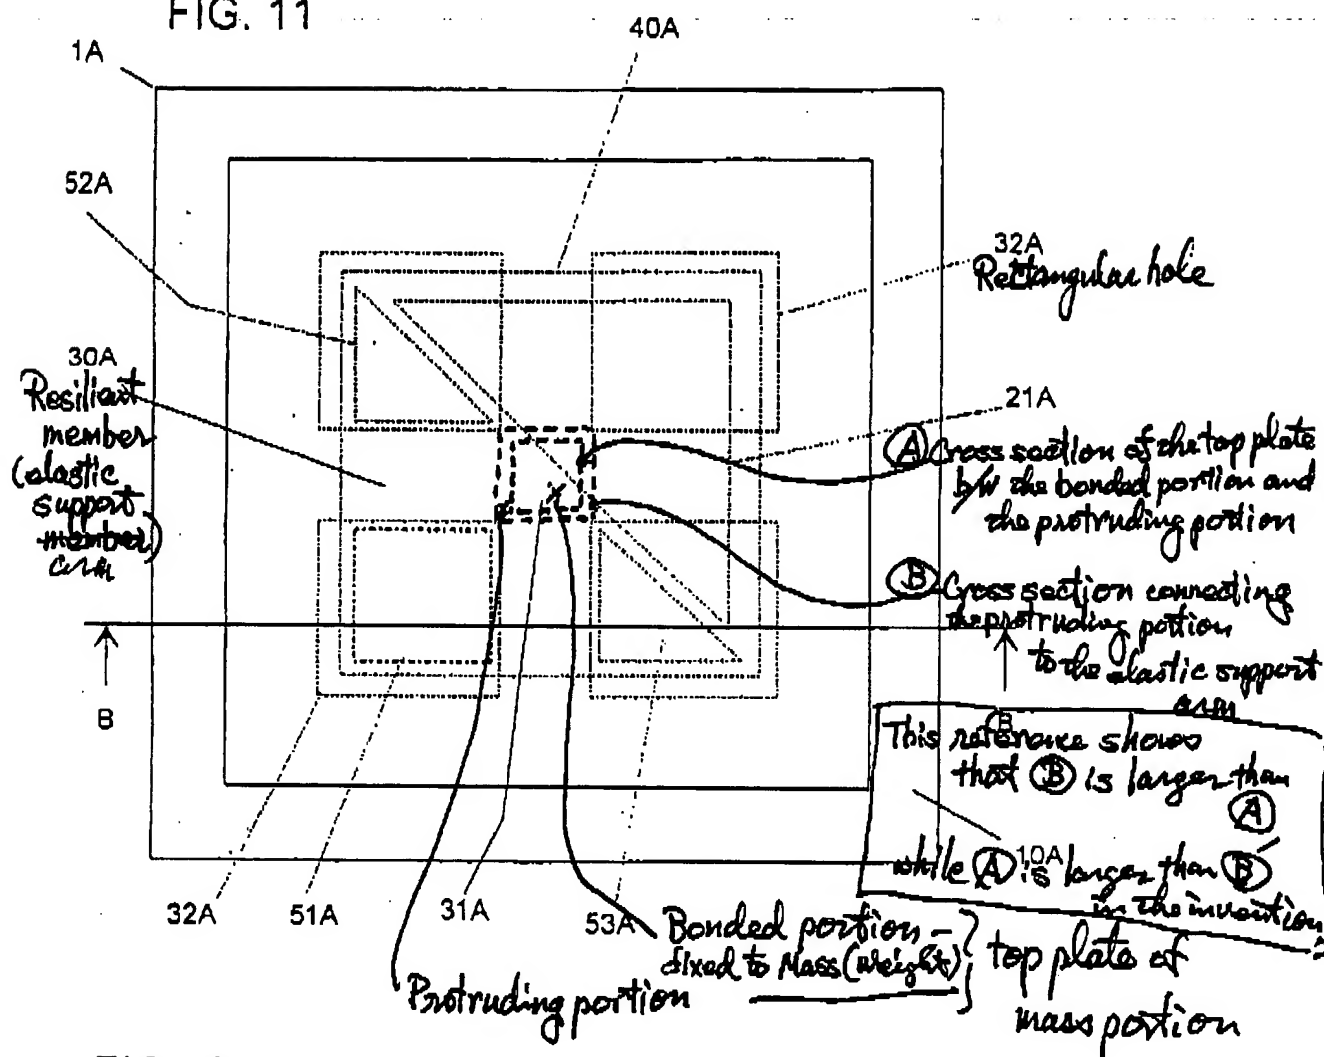 FIG. 11
40A
1A
52A
32A
Rectangular hole
30A
Resilient
member
(elastic
support
member)
arm
21A
Ⓐ Cross section of the top plate
b/w the bonded portion and
the protruding portion
Ⓑ Cross section connecting
the protruding portion
to the elastic support
arm
B
B
This reference shows
that Ⓑ is larger than
Ⓐ
10A
while Ⓐ is larger than Ⓑ
in the invention
32A
51A
31A
53A
Bonded portion -
fixed to Mass (weight)
top plate of
mass portion
Protruding portion